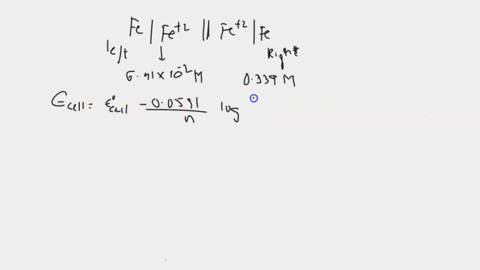 Fe | Fe+2 || Fe+2 | Fe
left ↓ Right
5.41 × 10-2 M 0.339 M
Ecell = E°cell - 0.0591/n log